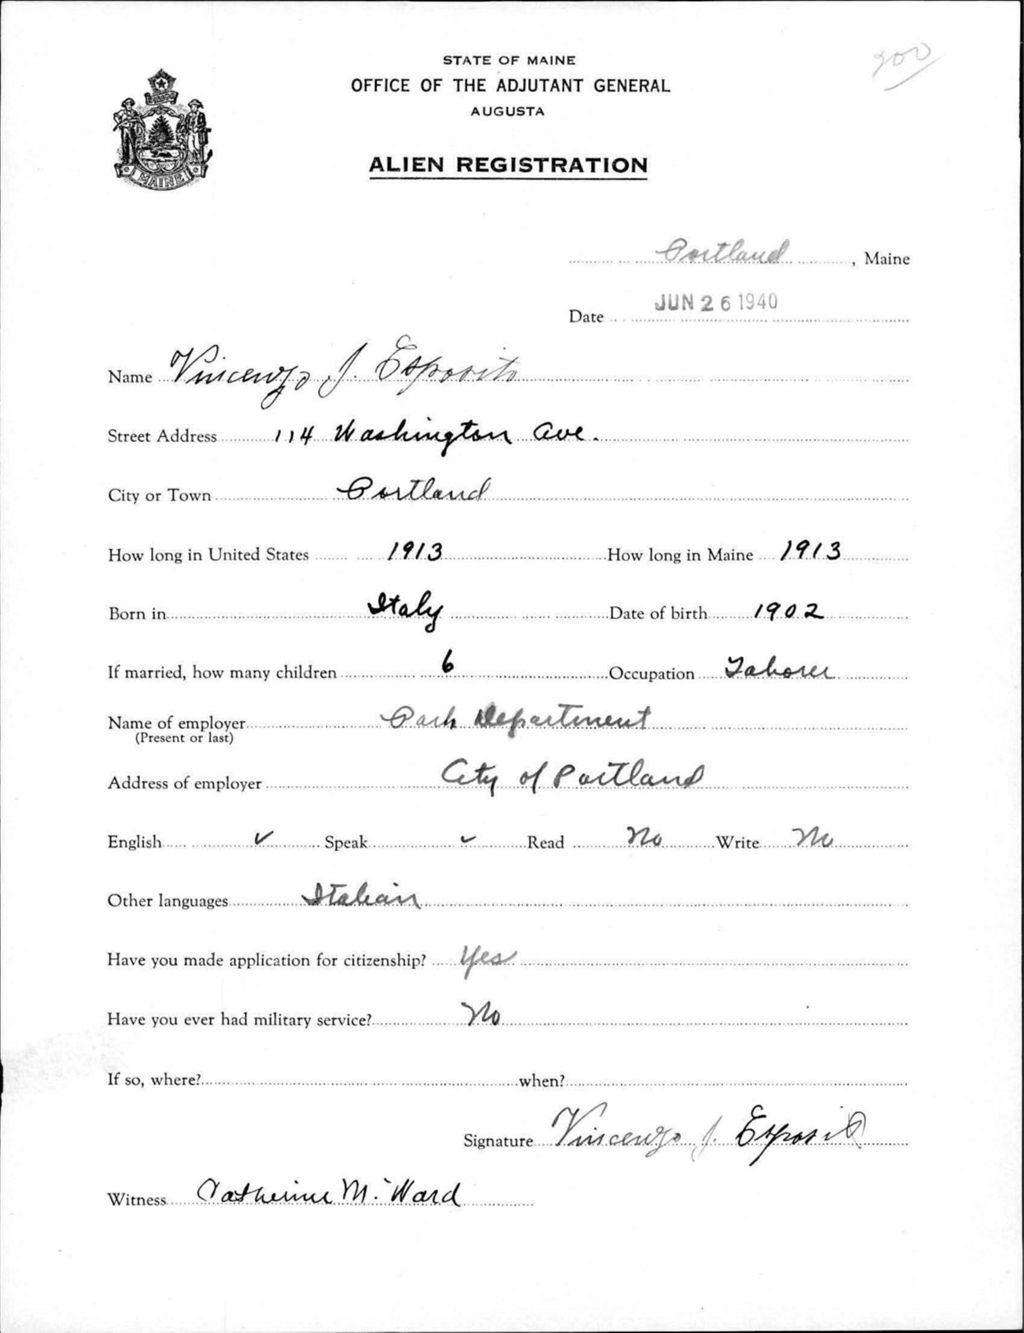 STATE OF MAINE
OFFICE OF THE ADJUTANT GENERAL
AUGUSTA
MAINE
ALIEN REGISTRATION
Portland, Maine
Date JUN 26 1940
Name Vincenzo J. Esposito
Street Address 114 Washington Ave.
City or Town Portland
How long in United States 1913 How long in Maine 1913
Born in Italy Date of birth 1902
If married, how many children 6 Occupation Laborer
Name of employer Park Department
(Present or last)
Address of employer City of Portland
English ✓ Speak ✓ Read No Write No
Other languages Italian
Have you made application for citizenship? Yes
Have you ever had military service? No
If so, where? when?
Signature Vincenzo J. Esposito
Witness Catherine M. Ward